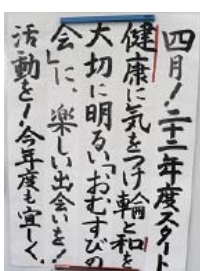 四月!二十二年度スタート
健康に気をつけ輪と和を
大切に明るい「おむすびの
会」に、楽しい出会いを!
活動を!今年度も宜しく、